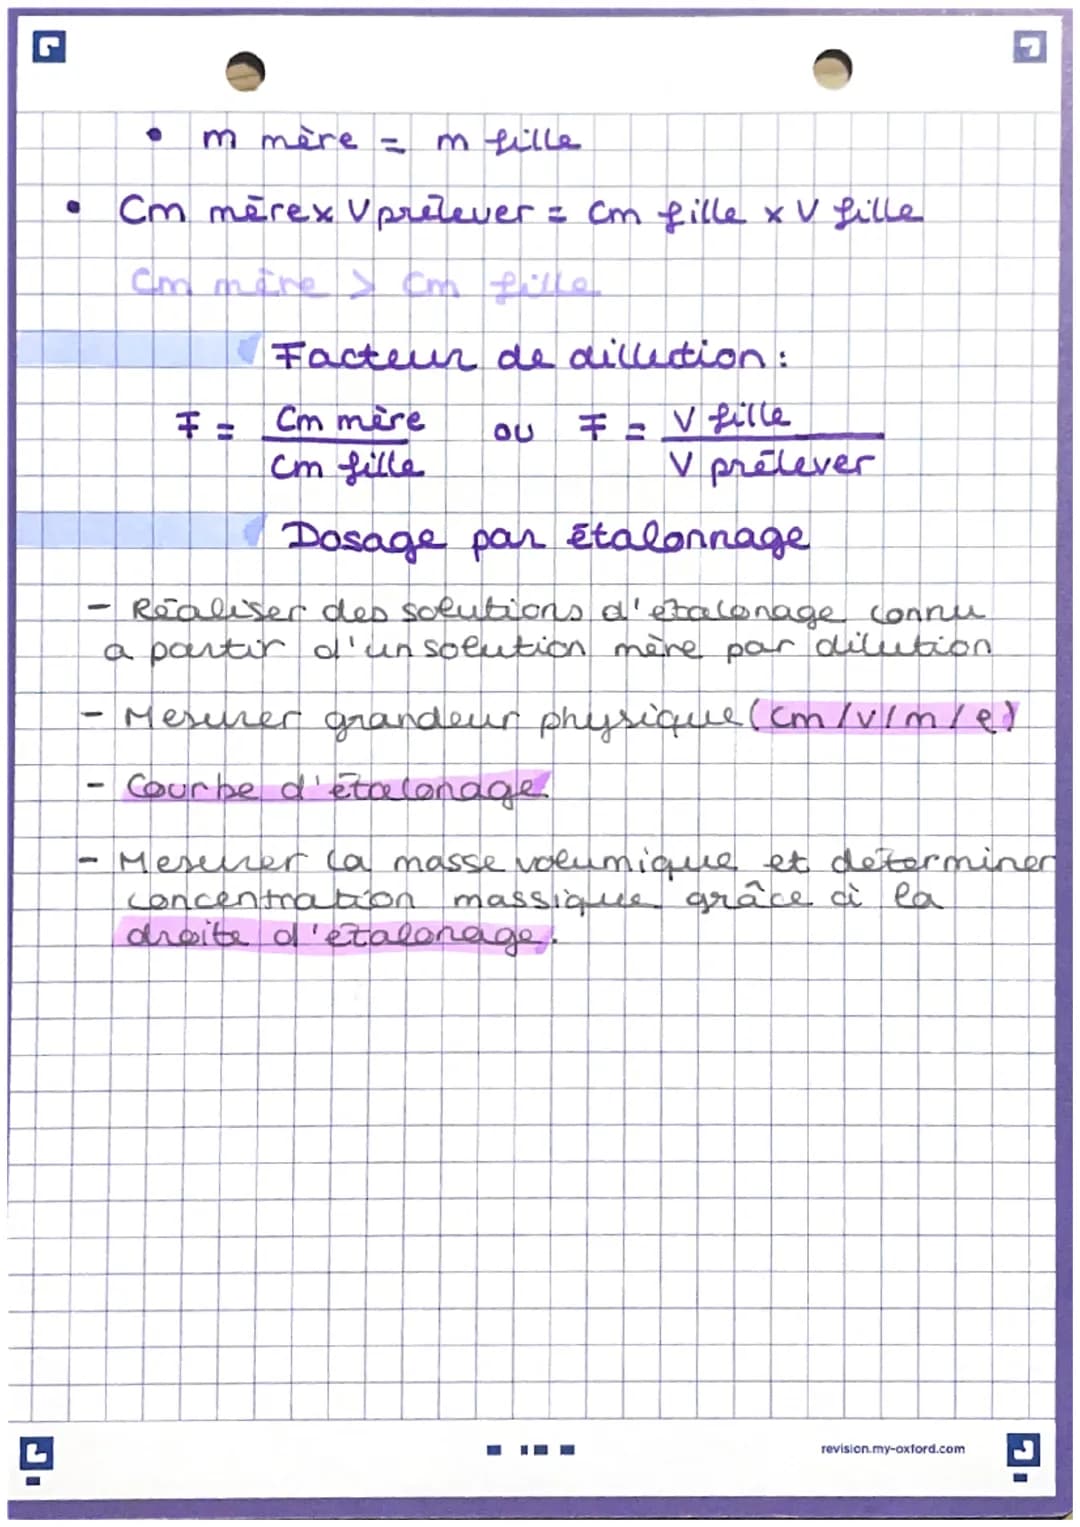 • m mère = m fille
• Cm mère x V prélever = Cm fille x V fille
Cm mère > Cm fille
Facteur de dillution :
F = Cm mère / Cm fille ou F = V fille / V prélever
Dosage par étalonnage
- Réaliser des solutions d'étalonage connu
a partir d'un solution mère par dilution
- Mesurer grandeur physique (Cm/V/m/e)
- Courbe d'étalonage.
- Mesurer la masse volumique et déterminer
concentration massique grâce à la
droite d'étalonage.
revision.my-oxford.com